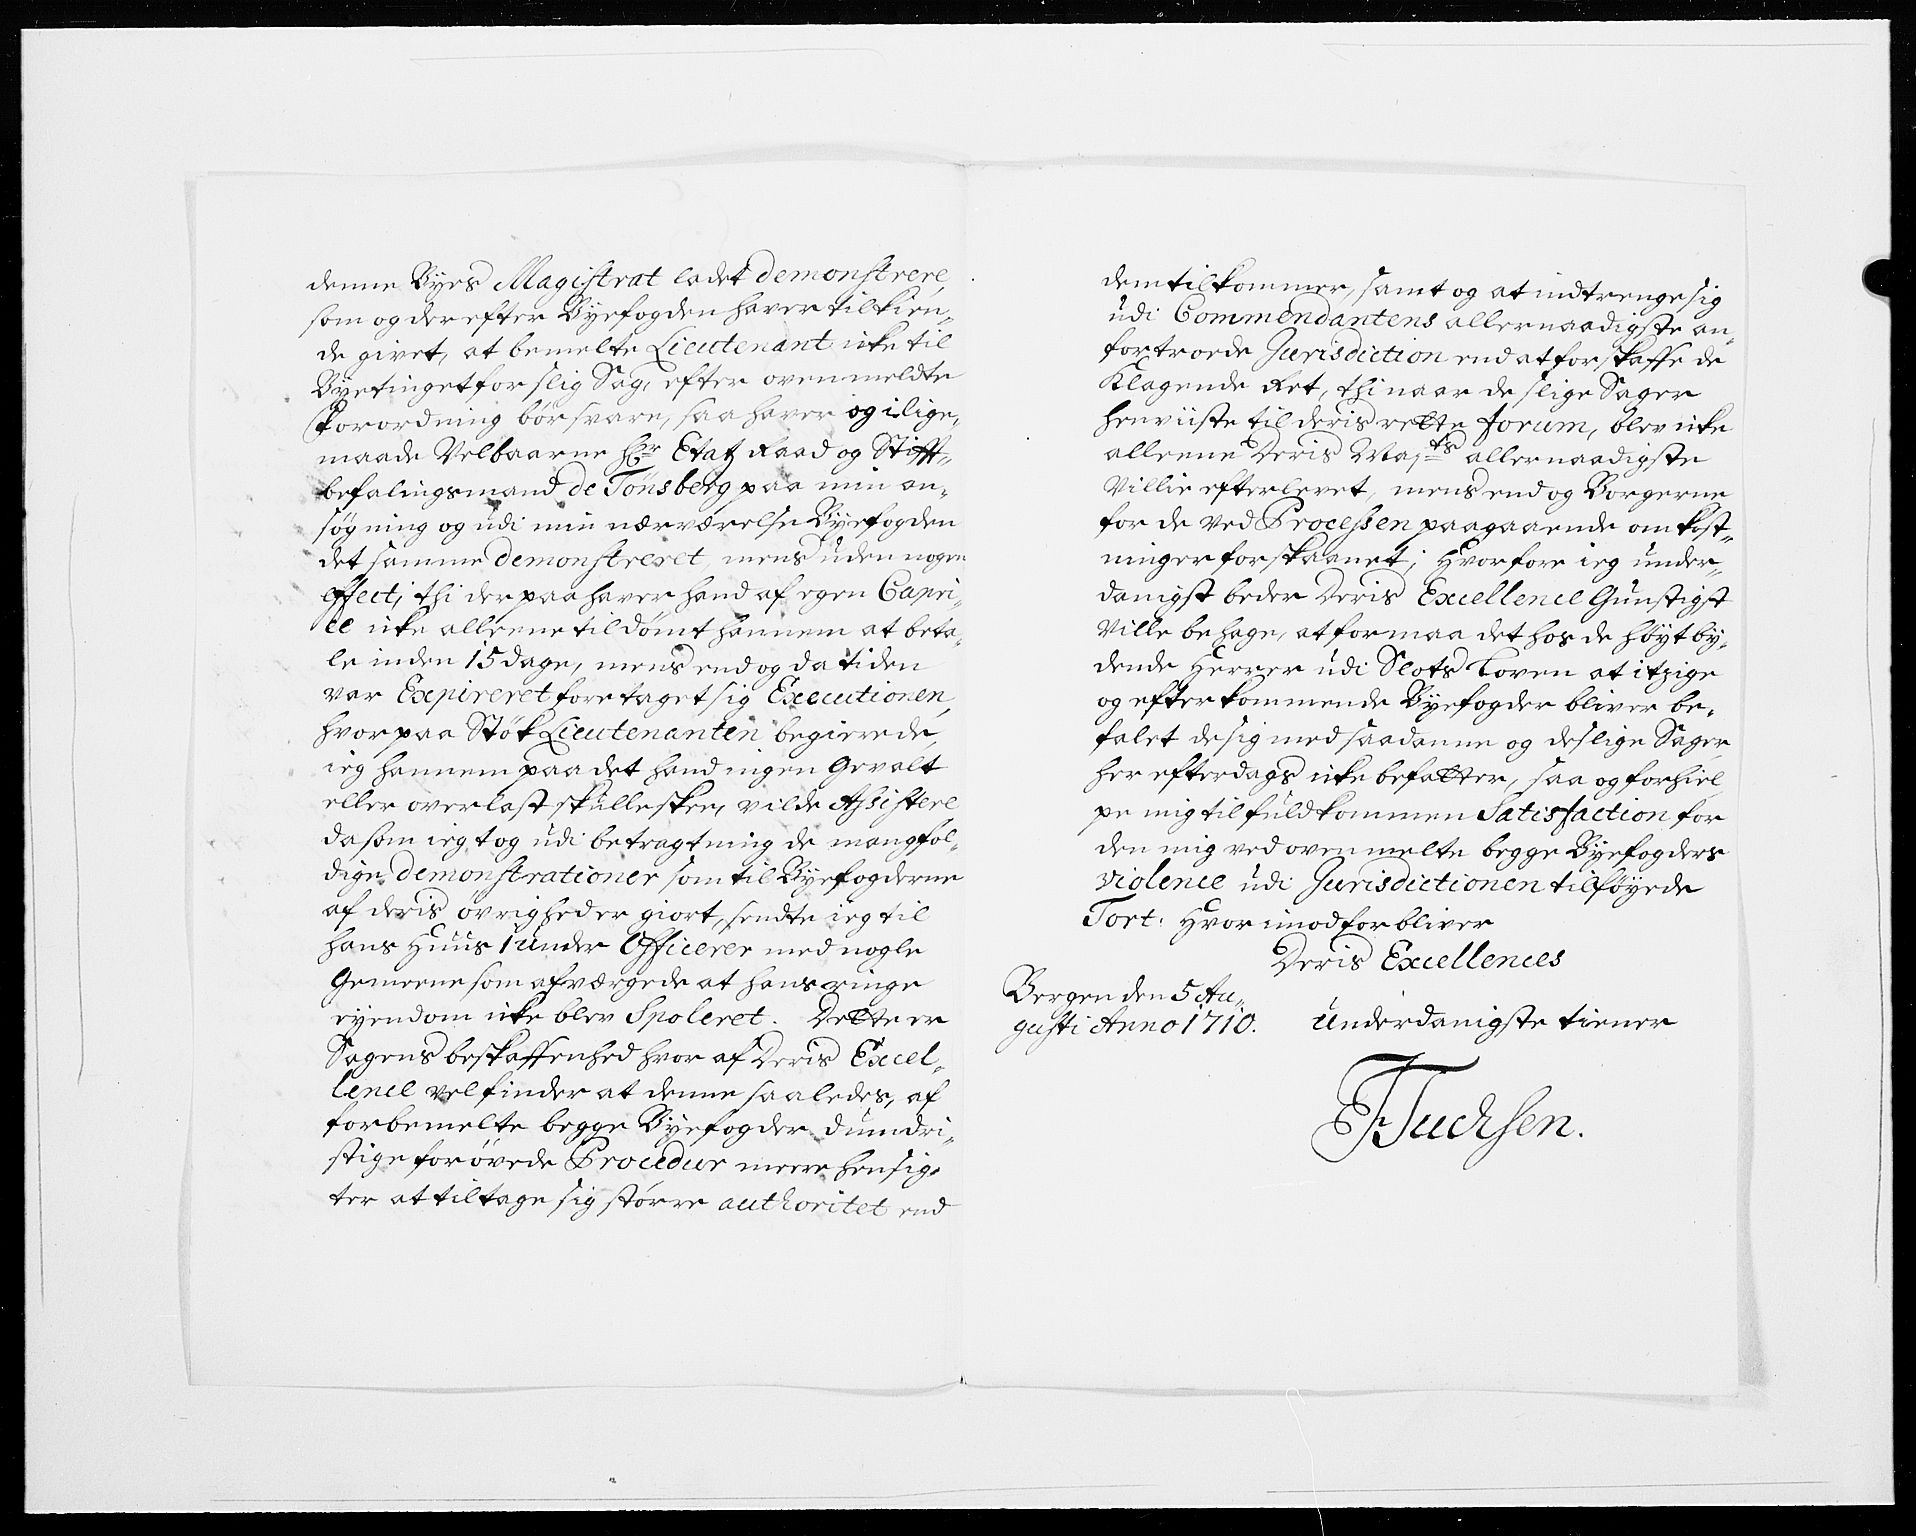 denne Byes Magistrat ladet demonstrere,
som og derefter Byefogden haver tilkien¬
de givet, at bemelte Lieutenant icke til
Byetinget for slig Sag, efter ovenmeldte
Forordning bør svare, saa haver og ilige¬
maade Velbaarne Hr Etatz Raad og Stifft¬
befalingsmand de Tønsberg paa min an¬
søgning og udi min nærværelse Byefogden
det samme demonstreret, mens uden nogen
effect; thi der paa haver hand af egen Capri¬
ce icke alleene tildømt hannem at beta¬
le inden 15 dage, mens end og da tiden
var Expireret foretaget sig Executionen,
hvorpaa Støk Lieutenanten begierede,
ieg hannem paa det hand ingen Gevalt
eller overlast skulle skee, vilde Assistere,
da som ieg tog udi betragtning de mangfol¬
dige demonstrationer som til Byefogderne
af deris øvrigheder giort, sendte ieg til
hans Huus 1 under Officerer med nogle
Gemeene som afværgede at hans ringe
eyendom icke blev Spoleret. Dette er
Sagens beskaffenhed hvor af Deris Excel¬
lence vel finder at denne saaledes, af
forbemelte begge Byefogder dumdri¬
stige forøvede Procedur meere hensig¬
ter at tiltage sig større authoritet end
dem tilkommer, samt og at indtrenge sig
udi Commendantens allernaadigste an¬
fortroede Jurisdiction end at forskaffe de
Klagende Ret, thi naar de slige Sager
henviiste til deris rette forum, blev icke
alleene Deris Maj:ts allernaadigste
Villie efterlevet, mens end og Borgerne
for de ved Processen paagaaende omkost¬
ninger forskaanet; Hvorfore ieg under¬
danigst beder Deris Excellence Gunstigst
Ville behage, at formaa det hos de høyt by¬
dende Herrer udi Slots Loven at itzige
og efterkommende Byefogder bliver be¬
falet de sig med saadanne og deslige Sager
her efterdags icke befatter, saa og forhiel
pe mig til fuldkommen Satisfaction for
den mig ved oven melte begge Byefogders
violence udi Jurisdictionen tilføyede
Tort: Hvor imod forbliver
Deris Excellences
Bergen den 5 Au¬
gusti Anno 1710.
underdanigste tiener
FTuchsen.